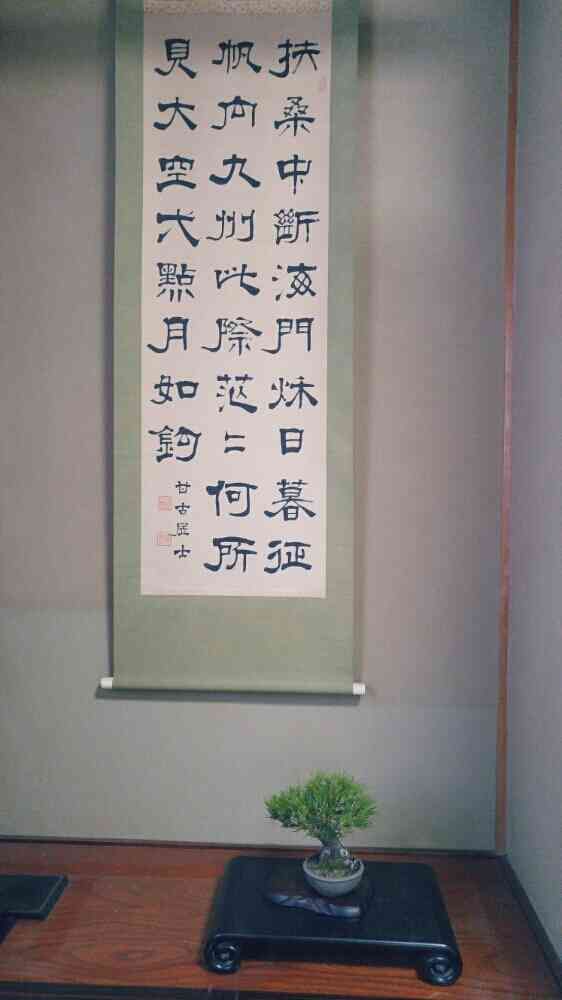 扶桑中斷海門秋日暮征
帆向九州此際茫々何所
見大空弌點月如鉤
甘古居士